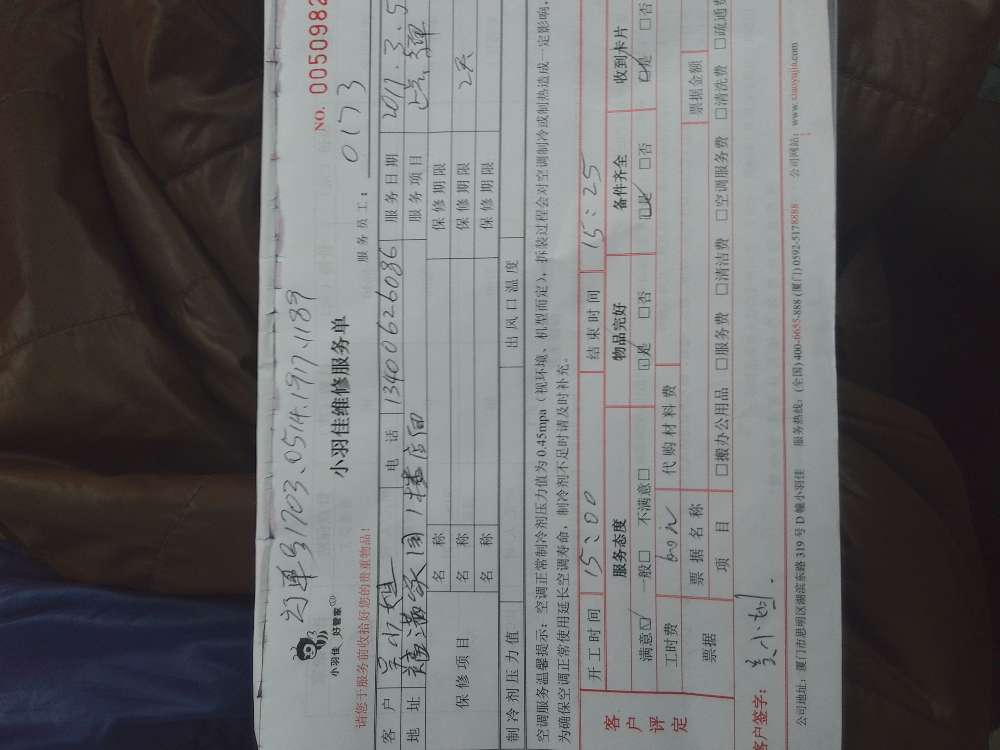 订单号1703.0514.1917.1189
小羽佳 好管家
小羽佳维修服务单
NO. 0050982
请您于服务前收拾好您的贵重物品！
服务员工： 0173
客户 吴小姐 电话 13400626086 服务日期 2017.3.5
地址 福满家园1楼店面 服务项目
保修项目 名称 保修期限
名称 保修期限 2天
名称 保修期限
制冷剂压力值 出风口温度
空调服务温馨提示：空调正常制冷剂压力值为0.45mpa（视环境、机型而定），拆装过程会对空调制冷或制热造成一定影响，
为确保空调正常使用延长空调寿命，制冷剂不足时请及时补充。
客户评定
开工时间 15:00 结束时间 15:25
服务态度 物品完好 备件齐全 收到卡片
满意☑ 一般□ 不满意□ ☑是 □否 ☑是 □否 ☑是 □否
工时费 60元 代购材料费
票据 票据名称 票据金额
项目 □搬办公用品 □服务费 □清洁费 □空调服务费 □清洗费 □疏通费
客户签字： 吴小姐.
公司地址：厦门市思明区湖滨东路319号D幢小羽佳 服务热线：(全国) 400-6655-888 (厦门) 0592-5178888 公司网站：www.xiaoyujia.com